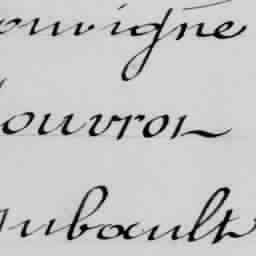 ouvigne
ouvron
aubault